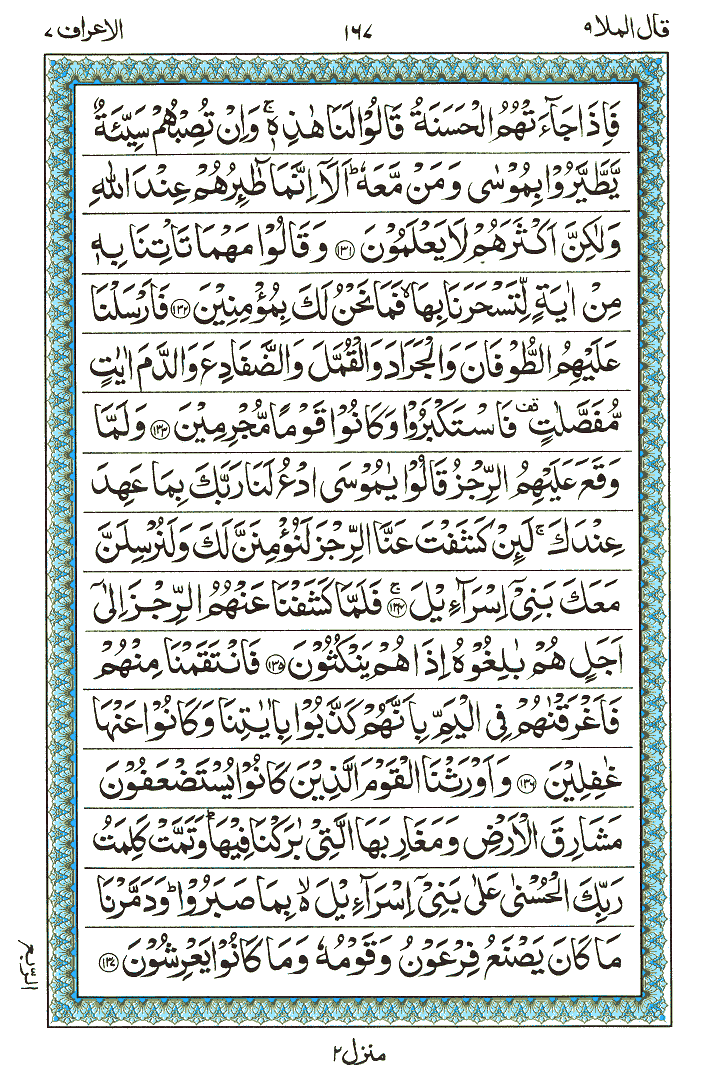 قال الملا ٩ ١٦٧ الاعراف ٧
فَاِذَا جَآءَتْهُمُ الْحَسَنَةُ قَالُوْا لَنَا هٰذِهٖ ۚ وَاِنْ تُصِبْهُمْ سَيِّئَةٌ
يَّطَّيَّرُوْا بِمُوْسٰى وَمَنْ مَّعَهٗ ؕ اَلَاۤ اِنَّمَا طٰٓئِرُهُمْ عِنْدَ اللّٰهِ
وَلٰكِنَّ اَكْثَرَهُمْ لَا يَعْلَمُوْنَ ﴿۱۳۱﴾ وَقَالُوْا مَهْمَا تَاْتِنَا بِهٖ
مِنْ اٰيَةٍ لِّتَسْحَرَنَا بِهَا ۙ فَمَا نَحْنُ لَكَ بِمُؤْمِنِيْنَ ﴿۱۳۲﴾ فَاَرْسَلْنَا
عَلَيْهِمُ الطُّوْفَانَ وَالْجَرَادَ وَالْقُمَّلَ وَالضَّفَادِعَ وَالدَّمَ اٰيٰتٍ
مُّفَصَّلٰتٍ قف فَاسْتَكْبَرُوْا وَكَانُوْا قَوْمًا مُّجْرِمِيْنَ ﴿۱۳۳﴾ وَلَمَّا
وَقَعَ عَلَيْهِمُ الرِّجْزُ قَالُوْا يٰمُوْسَى ادْعُ لَنَا رَبَّكَ بِمَا عَهِدَ
عِنْدَكَ ۚ لَئِنْ كَشَفْتَ عَنَّا الرِّجْزَ لَنُؤْمِنَنَّ لَكَ وَلَنُرْسِلَنَّ
مَعَكَ بَنِيْۤ اِسْرَآءِيْلَ ۚ ﴿۱۳۴﴾ فَلَمَّا كَشَفْنَا عَنْهُمُ الرِّجْزَ اِلٰۤى
اَجَلٍ هُمْ بٰلِغُوْهُ اِذَا هُمْ يَنْكُثُوْنَ ﴿۱۳۵﴾ فَانْتَقَمْنَا مِنْهُمْ
فَاَغْرَقْنٰهُمْ فِى الْيَمِّ بِاَنَّهُمْ كَذَّبُوْا بِاٰيٰتِنَا وَكَانُوْا عَنْهَا
غٰفِلِيْنَ ﴿۱۳۶﴾ وَاَوْرَثْنَا الْقَوْمَ الَّذِيْنَ كَانُوْا يُسْتَضْعَفُوْنَ
مَشَارِقَ الْاَرْضِ وَمَغَارِبَهَا الَّتِيْ بٰرَكْنَا فِيْهَا ؕ وَتَمَّتْ كَلِمَتُ
رَبِّكَ الْحُسْنٰى عَلٰى بَنِيْۤ اِسْرَآءِيْلَ ۙ بِمَا صَبَرُوْا ؕ وَدَمَّرْنَا
مَا كَانَ يَصْنَعُ فِرْعَوْنُ وَقَوْمُهٗ وَمَا كَانُوْا يَعْرِشُوْنَ ﴿۱۳۷﴾
الرّبع
منزل ٢